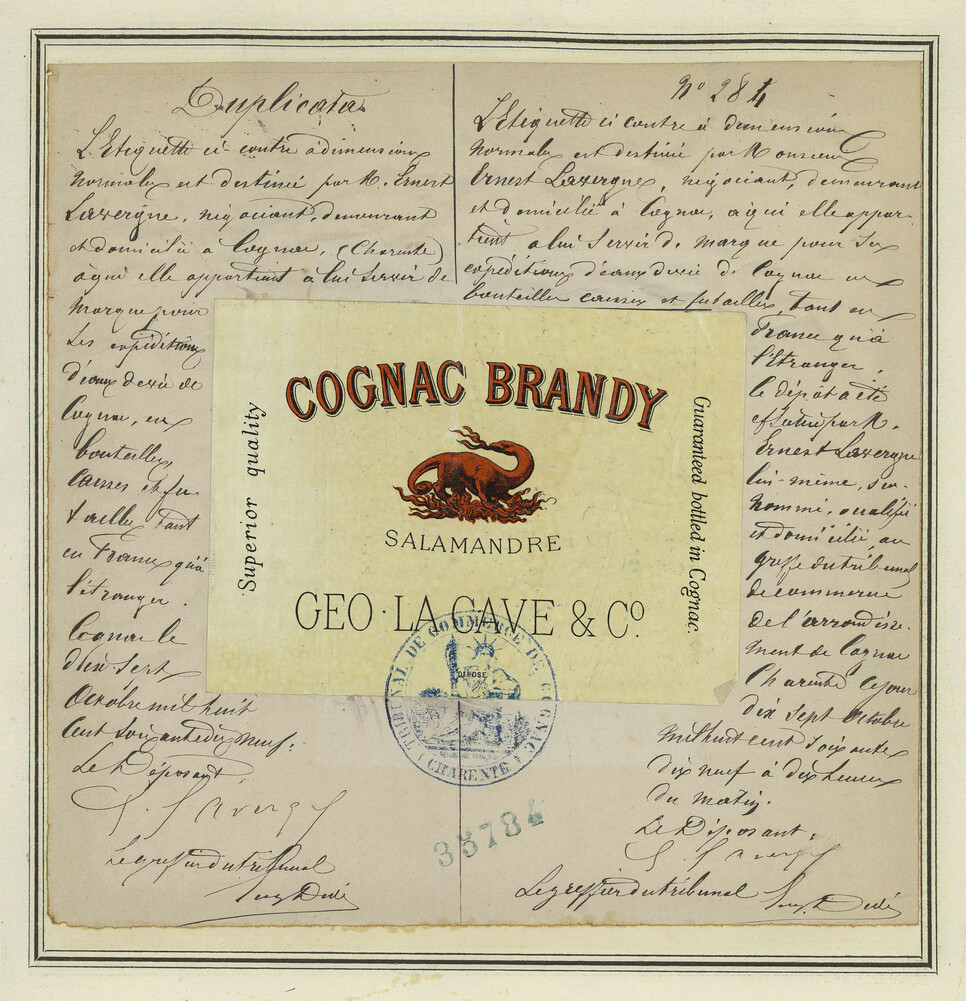 Duplicata
L'Etiquette ci-contre à dimensions
normales est destinée par M. Ernest
Lavergne, négociant, demeurant
et domicilié à Cognac, (Charente)
à qui elle appartient à lui servir de
marque pour
ses expéditions
d'eaux de vie de
Cognac, en
bouteilles,
caisses et fu-
tailles, tant
en France qu'à
l'étranger.
Cognac le
dix sept
Octobre mil huit
cent soixante dix neuf.
Le Déposant,
E. Lavergne
Le greffier du tribunal
No 284
L'Etiquette ci contre à dimensions
normales est destinée par Monsieur
Ernest Lavergne, négociant, demeurant
et domicilié à Cognac, à qui elle appar-
tient à lui servir de marque pour ses
expéditions d'eaux de vie de Cognac en
bouteilles caisses et futailles, tant en
France qu'à
l'Etranger,
le dépôt a été
effectué par M.
Ernest Lavergne
lui-même, sus-
nommé, qualifié
et domicilié, au
greffe du tribunal
de commerce
de l'arrondisse-
ment de Cognac
Charente ce jour
dix sept Octobre
mil huit cent soixante
dix neuf à dix heures
du matin.
Le Déposant,
E. Lavergne
Le greffier du tribunal
COGNAC BRANDY
Superior quality
Guaranteed bottled in Cognac.
SALAMANDRE
GEO. LA CAVE & Co.
DÉPOSÉ
TRIBUNAL DE COMMERCE DE COGNAC
(CHARENTE)
35784